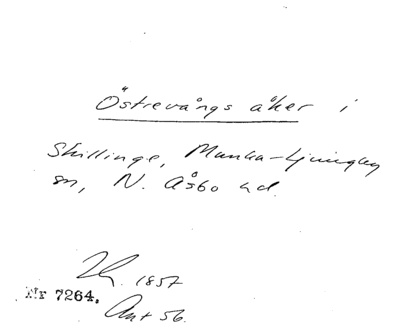 Östrevångs åker i
Skillinge, Munka-Ljungby
sn, N. Åsbo hd.
1857
Nr 7264.
Ant 56.